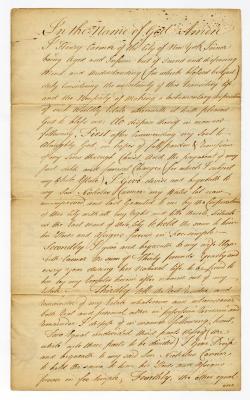 In the Name of God Amen
I Henry Carmer of the City of New York
being Aged and Infirm but of Sound and disposing
Mind and Understanding (for which blessed be God)
duly Considering the uncertainty of this Transitory life
and the Propriety of making a
of such worldly Estate
to bless me, Do dispose thereof in manner
following, First after Commending my Soul to
Almighty God, in hopes of full pardon & remission
of my Sins through Christ And the payment of my
just debts and funeral Charges (for which I subject
my whole Estate) I Give devise and bequeath to
my Son Nicholas Carmer my Water lot
improved and last Granted to me by the Corporation
of this City with all my Right and title thereto situate
in the East ward of this City To hold the same to him
his Heirs and Assigns forever in Fee simple
Secondly I give and bequeath to my
Wife Carmer the sum of Ninety pounds Yearly and
every year during her Natural life to be paid to
her by my Executors herein after named out of my
Estate Thirdly All the Rest Residue and
remainder of my Estate whatsoever and wheresoever
both Real and personal either in possession reversion or
remainder I dispose of in manner following
Two Equal undivided third parts thereof (the
whole into three parts to be divided) I Give Devise
and bequeath to my said Son Nicholas Carmer
to hold the same to him, his Heirs and Assigns
forever in fee simple, Fourthly, the other equal